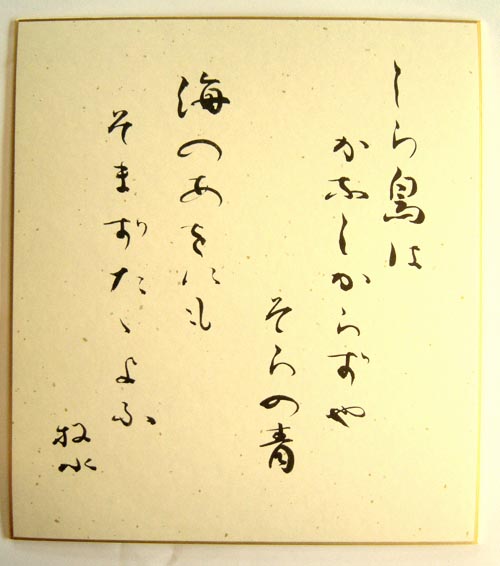 しら鳥は
かなしからずや
そらの青
海のあをにも
そまずたゝよふ
牧水